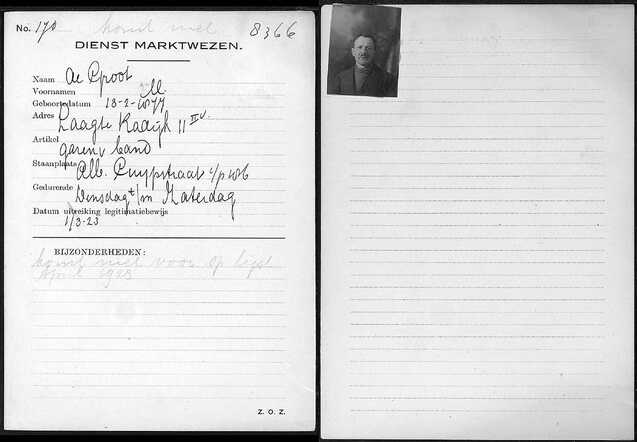 No. 170 komt niet 8366
DIENST MARKTWEZEN.
Naam de Groot
Voornamen M.
Geboortedatum 13-2-1877
Adres Laagte Kadijk 11 II v.
Artikel garen v band
Staanplaats Alb. Cuypstraat c/p 186
Gedurende Dinsdag t/m Zaterdag
Datum uitreiking legitimatiebewijs
1/3-23
BIJZONDERHEDEN:
komt niet voor op lijst
April 1923
Z. O. Z.